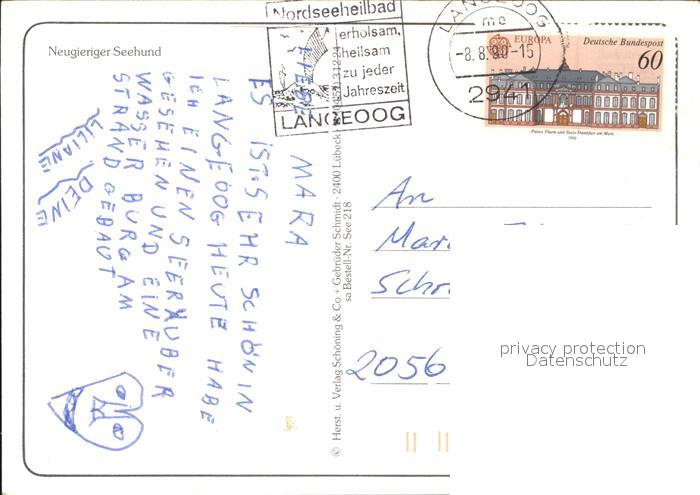 Neugieriger Seehund
Nordseeheilbad
erholsam,
heilsam
zu jeder
Jahreszeit
LANGEOOG
LANGEOOG
mc
-8.8.90-15
2941
EUROPA Deutsche Bundespost
60
Palais Thurn und Taxis Frankfurt am Main
1990
LIEBE MARA
ES IST SEHR SCHÖN IN
LANGEOOG HEUTE HABE
ICH EINEN SEERÄUBER
GESEHEN UND EINE
WASSER BURG AM
STRAND GEBAUT
DEINE
LILIANE
© Herst. u. Verlag Schöning & Co + Gebrüder Schmidt · 2400 Lübeck
sa Bestell-Nr. See 218
An
Mar
Sch
2056
privacy protection
Datenschutz